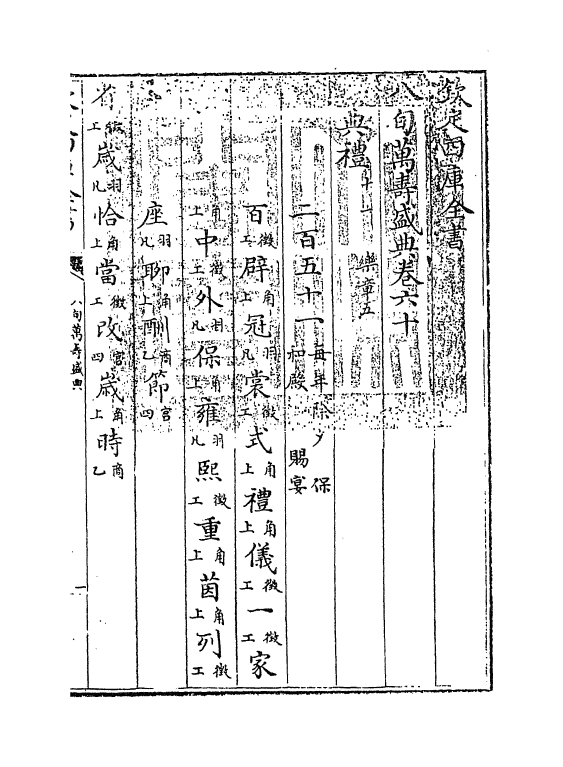 欽定四庫全書
八旬萬壽盛典卷六十
典禮十一 樂章五
二百五十一 每年除夕保和殿賜宴
百徵工辟角上冠羽凡裳徵工式角上禮角上儀徵工一徵工家
角上中徵工外羽凡保角上雍羽凡熙徵工重角上茵角上列徵工
座羽凡聊角上酬商乙節宮四
省徵工歳羽凡恰角上當徵工改宮四歳角上時商乙
八旬萬壽盛典 一